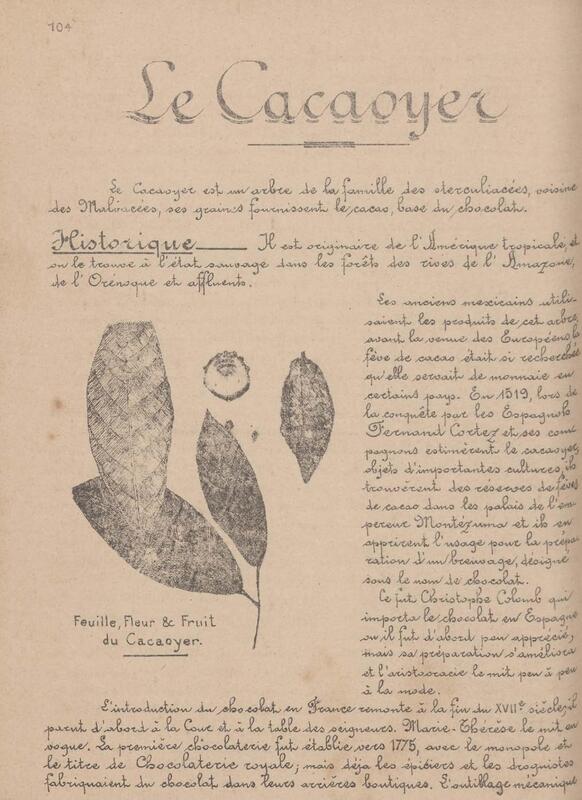 104
Le Cacaoyer
Le Cacaoyer est un arbre de la famille des sterculiacées, voisine
des Malvacées, ses graines fournissent le cacao, base du chocolat.
Historique Il est originaire de l'Amérique tropicale, et
on le trouve à l'état sauvage dans les forêts des rives de l'Amazone,
de l'Orénoque et affluents.
Les anciens mexicains utili-
saient les produits de cet arbre,
avant la venue des Européens la
fève de cacao était si recherchée
qu'elle servait de monnaie en
certains pays. En 1519, lors de
la conquête par les Espagnols
Fernand Cortez et ses com
pagnons estimèrent le cacaoyer,
objets d'importantes cultures, ils
trouvèrent des réserves de fèves
de cacao dans les palais de l'em
pereur Montézuma et ils en
apprirent l'usage pour la prépa
ration d'un breuvage, désigné
sous le nom de chocolat.
Ce fut Christophe Colomb qui
importa le chocolat en Espagne
où il fut d'abord peu apprécié,
mais sa préparation s'améliora
et l'aristocracie le mit peu à peu
à la mode.
Feuille, Fleur & Fruit
du Cacaoyer.
L'introduction du chocolat en France remonte à la fin du XVIIe siècle, il
parut d'abord à la Cour et à la table des seigneurs. Marie-Thérèse le mit en
vogue. La première chocolaterie fut établie vers 1775, avec le monopole et
le titre de Chocolaterie royale; mais déja les épiciers et les droguistes
fabriquaient du chocolat dans leurs arrières boutiques. L'outillage mécanique